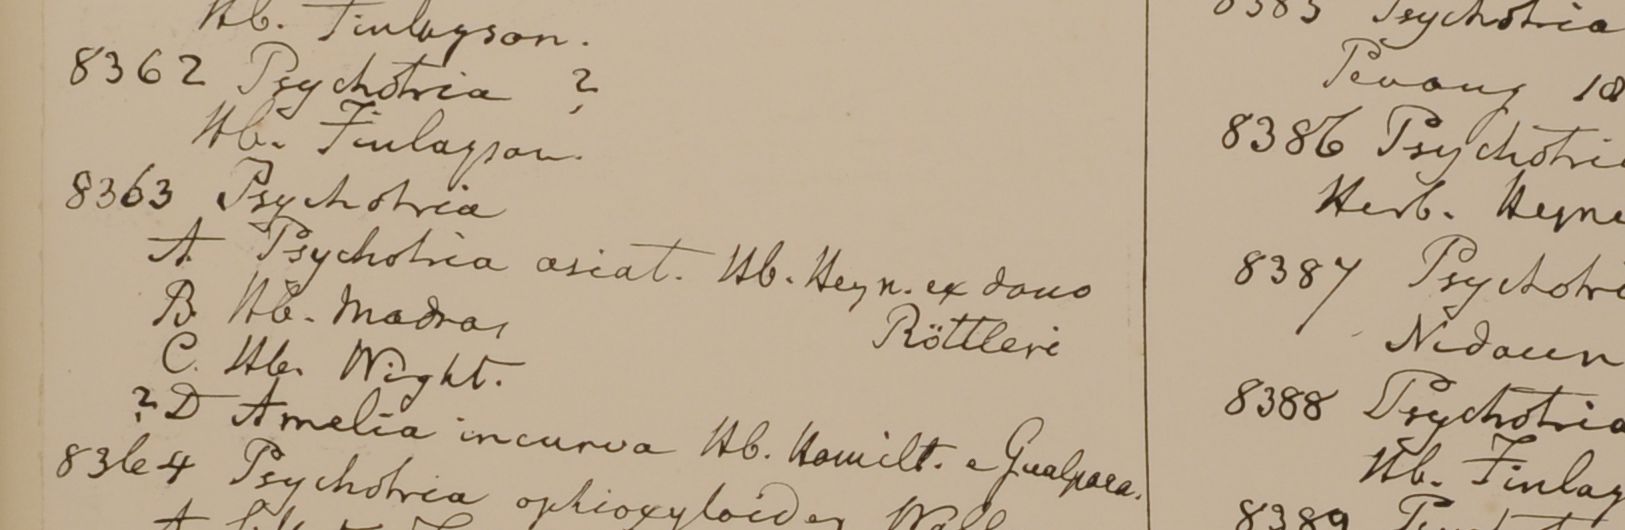 Hb. Finlayson.
8362 Psychotria ?
Hb. Finlayson.
8363 Psychotria
A Psychotria asiat. Hb. Heyn. ex dono
Röttleri
B Hb. Madras
C. Hb. Wight.
? D Amelia incurva Hb. Hamilt. e Gualpara.
8364 Psychotria ophioxyloides Wall
8385 Psychotria
Penang 18
8386 Psychotri
Herb. Heyne
8387 Psychotri
8388 Psychotria
Hb. Finlay
8389